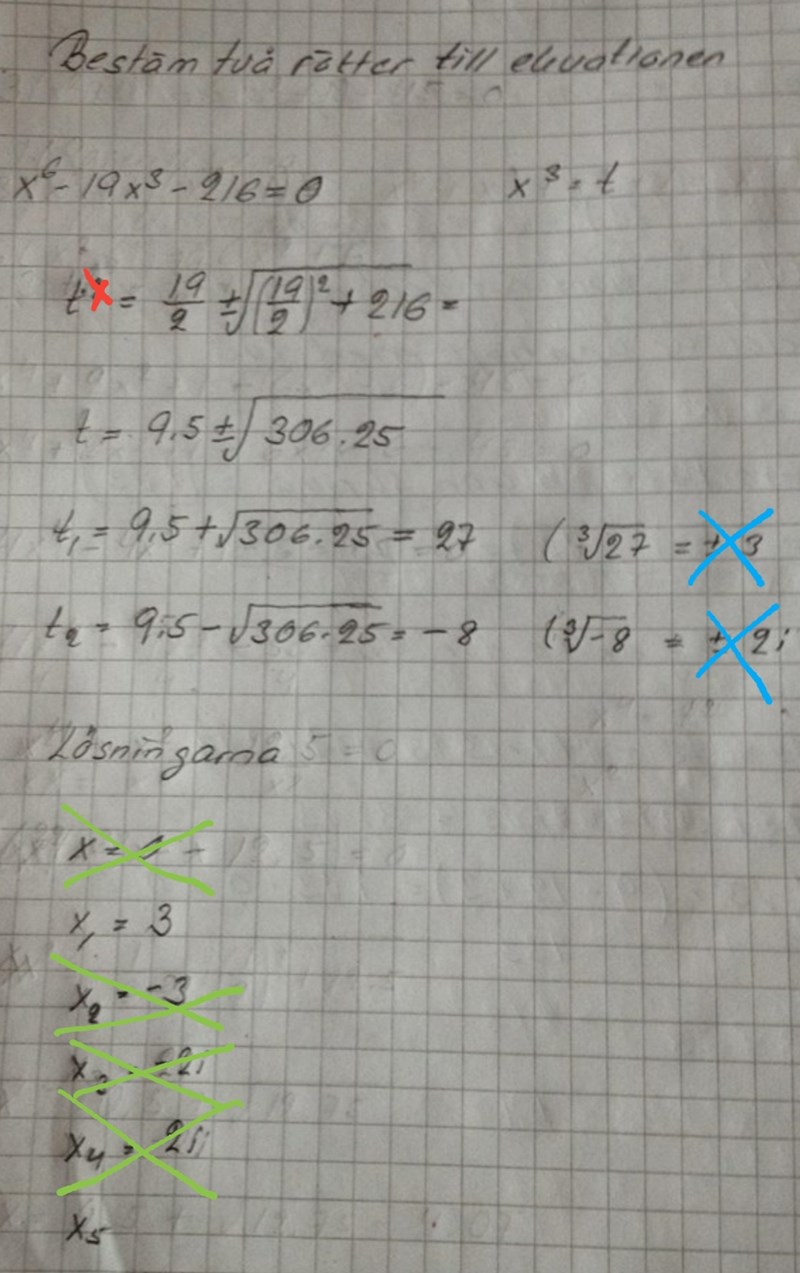 Bestäm två rötter till ekvationen
x⁶ - 19x³ - 216 = 0 x³ = t
t = 19/2 ± √((19/2)² + 216 =
t = 9.5 ± √306.25
t₁ = 9.5 + √306.25 = 27 (³√27 = ± 3
t₂ = 9.5 - √306.25 = -8 (³√-8 = ± 2i
Lösningarna
x =
x₁ = 3
x₂ = -3
x₃ -2i
x₄ = 2i
x₅